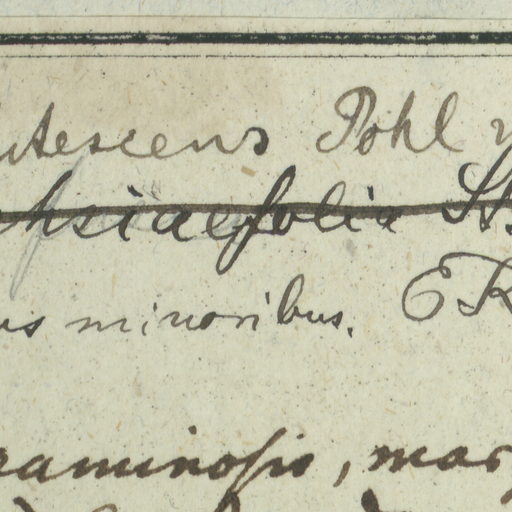 utescens Pohl v
chsiaefolia St.
us minoribus. EK
raminosis, mar